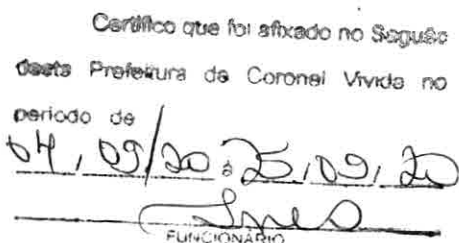 Certifico que foi afixado no Saguão
desta Prefeitura de Coronel Vivida no
período de
04, 09/20 à 25, 09, 20
FUNCIONÁRIO